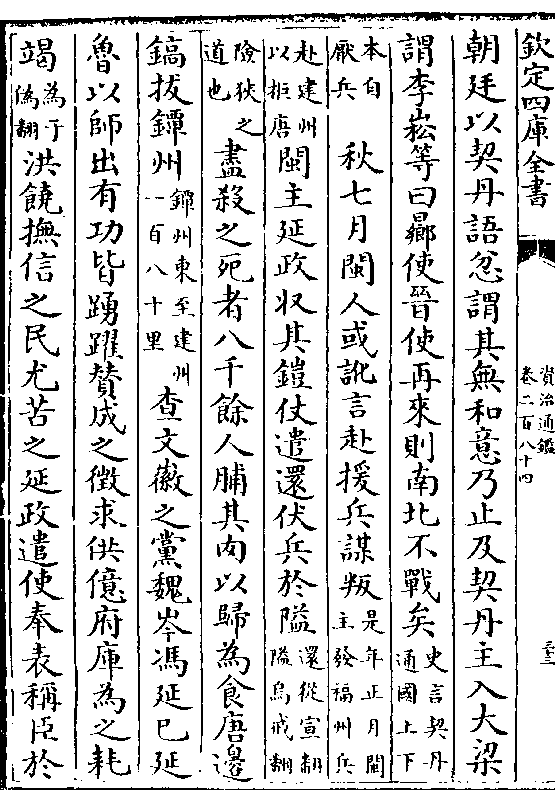 欽定四庫全書
資治通鑑
卷二百八十四
朝廷以契丹語忿謂其無和意乃止及契丹主入大梁
謂李崧等曰曏使晉使再來則南北不戰矣史言契丹通國上下
本自厭兵 秋七月閩人或訛言赴援兵謀叛是年正月閩主發福州兵
赴建州以拒唐閩主延政収其鎧仗遣還伏兵於隘還從宣翻隘烏戒翻
險狹之道也盡殺之死者八千餘人脯其肉以歸為食唐邊
鎬拔鐔州鐔州東至建州一百八十里查文徽之黨魏岑馮延巳延
魯以師出有功皆踴躍贊成之徵求供億府庫為之耗
竭為于偽翻洪饒撫信之民尤苦之延政遣使奉表稱臣於